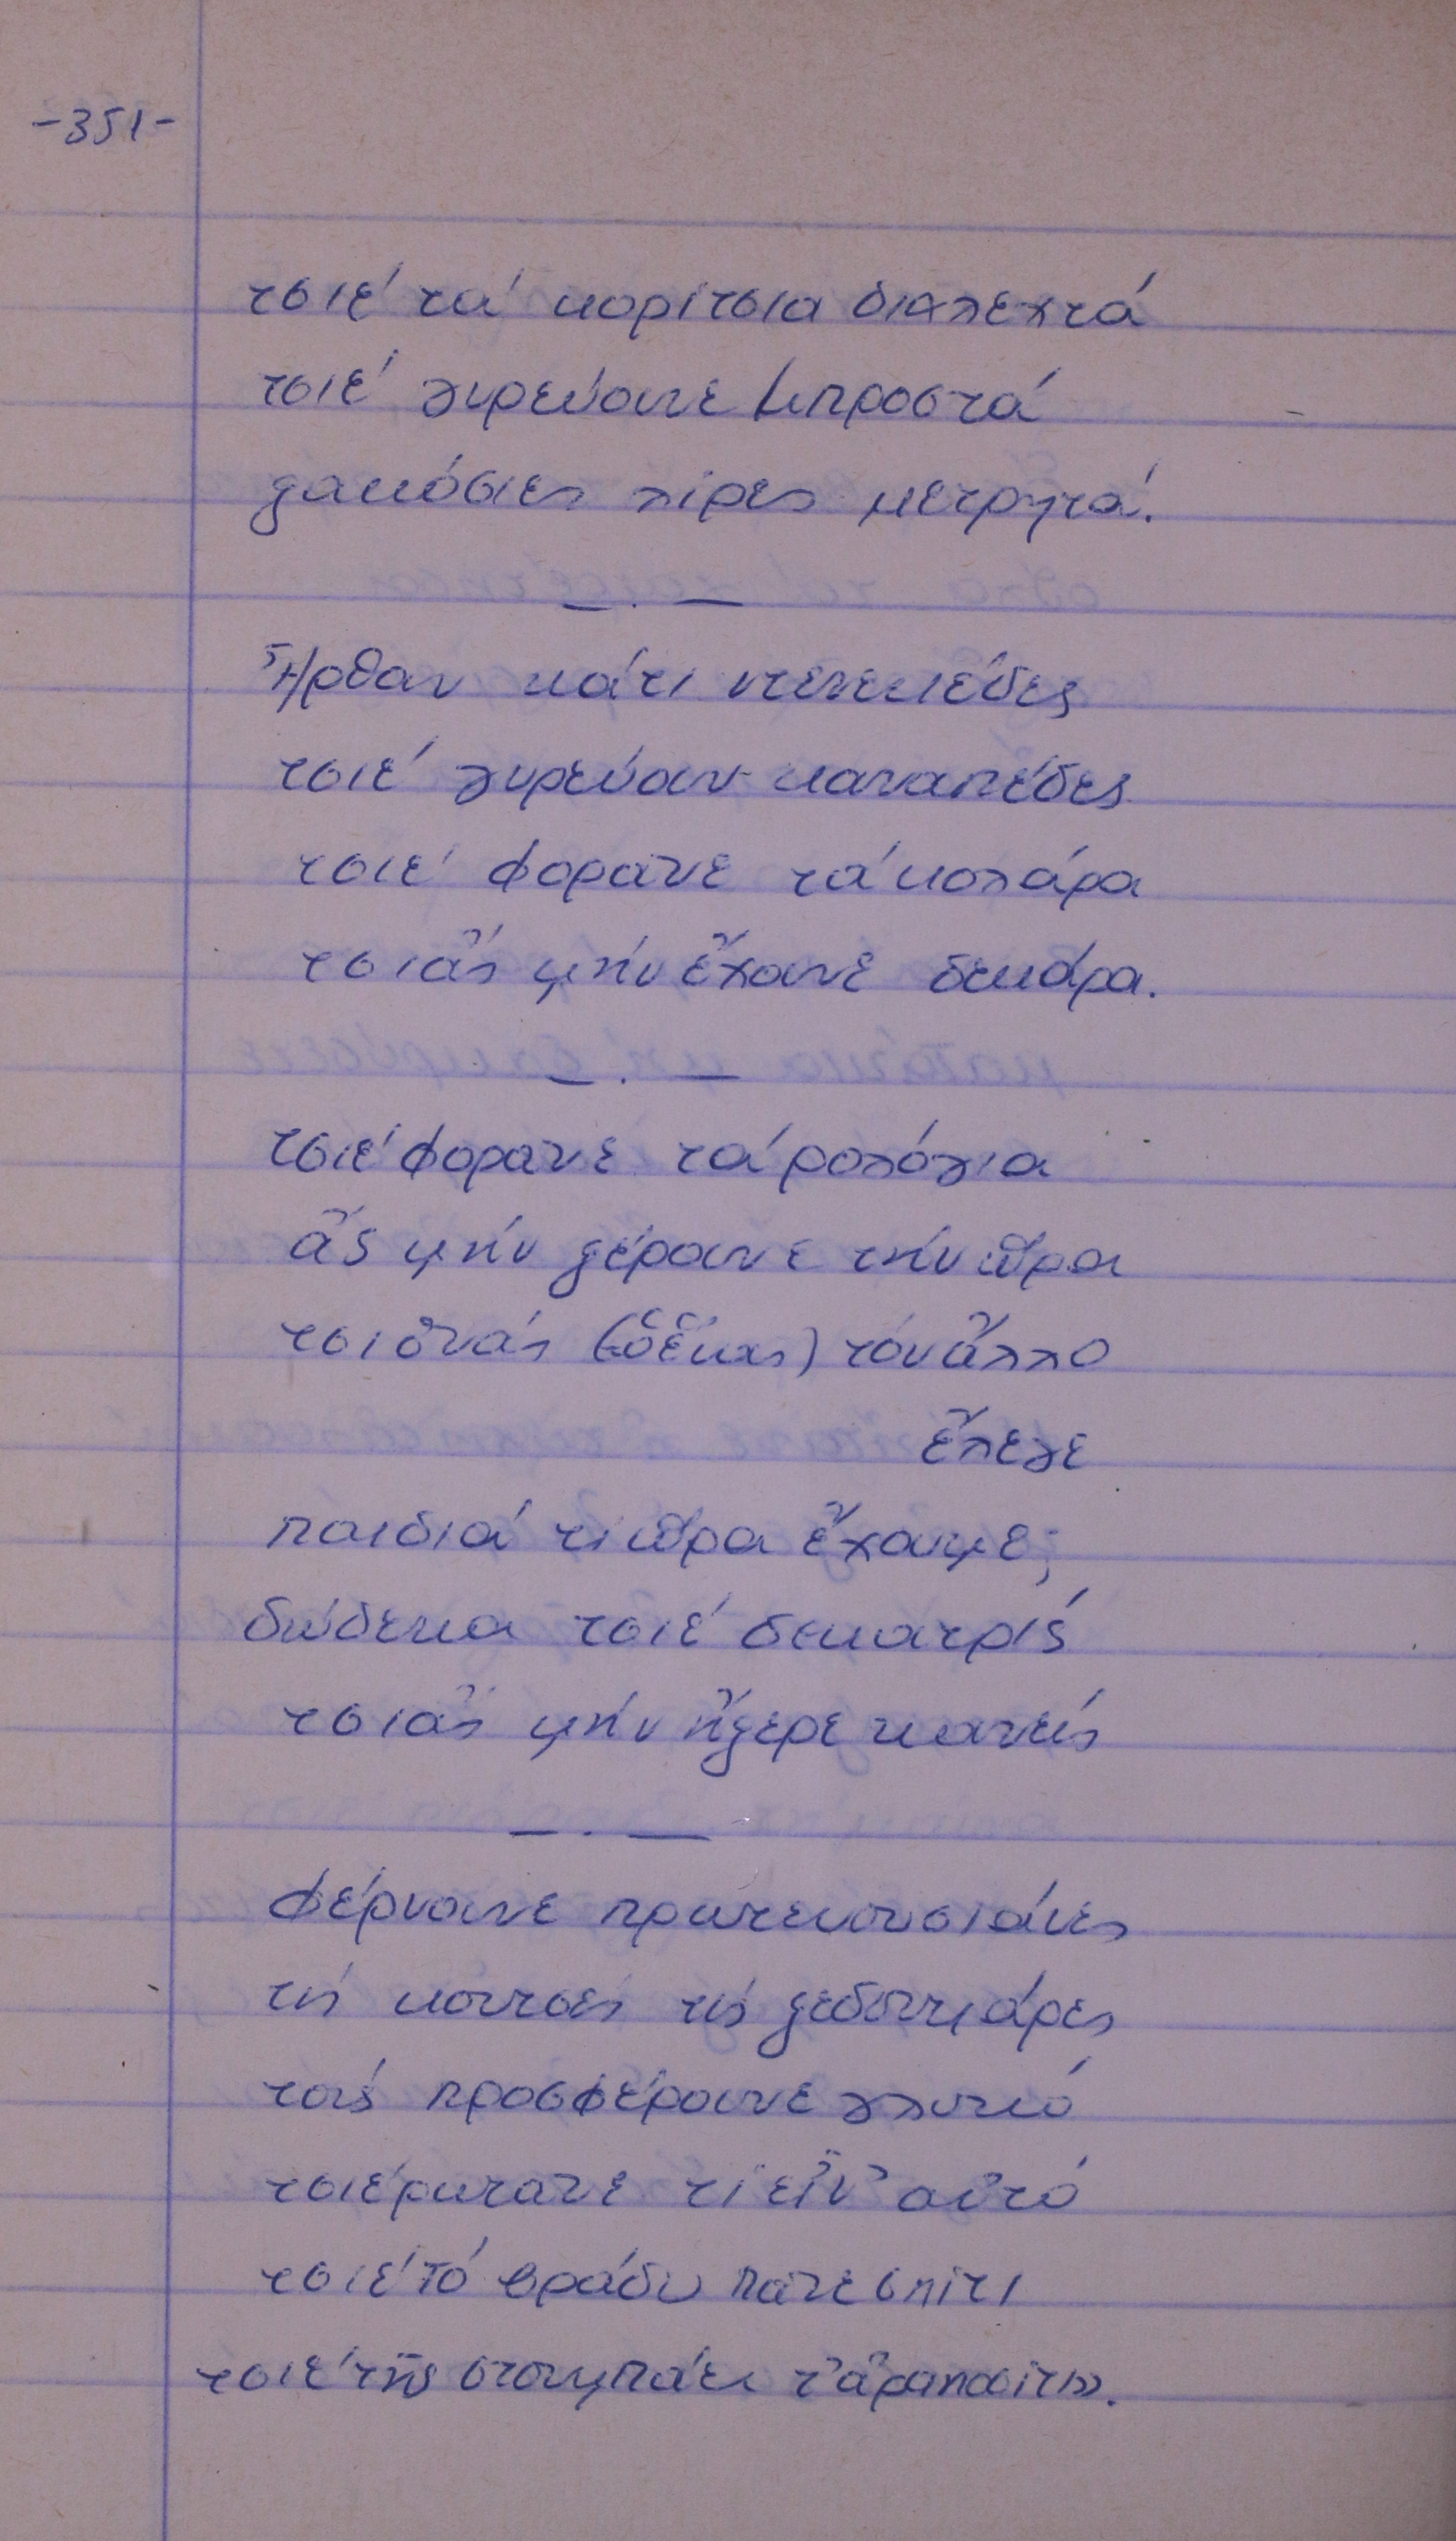 -351-
τσιέ τά κορίτσια διαλεχτά
τσιέ γυρεύουνε μπροστά
ξακόσιες λίρες μετρητά.
— . —
Ἦρθαν κάτι ντενεκιέδες
τσιέ γυρεύουν καναπέδες
τσιέ φορᾶνε τά κολάρα
τσι ἄς μήν ἔχουνε δεκάρα.
— . —
τσιέ φορᾶνε τά ρολόγια
ἄς μήν ξέρουνε τήν ὥρα
τσι ὁ νάς τόν ἄλλο
ἔλεγε
παιδιά τί ὥρα ἔχουμε;
δώδεκα τσιέ δεκατρίς
τσι ἄς μήν ἤξερε κανείς
— . —
Φέρνουνε πρωτευουσιάνες
τίς κουτσές τίς ξεδοντιάρες
τούς προσφέρουνε γλυκό
τσιέ ρωτᾶνε τί εἶν' αὐτό
τσιέ τό βράδυ πᾶνε σπίτι
τσιέ τῆς στουμπάει τ' ἀραποσίτι».